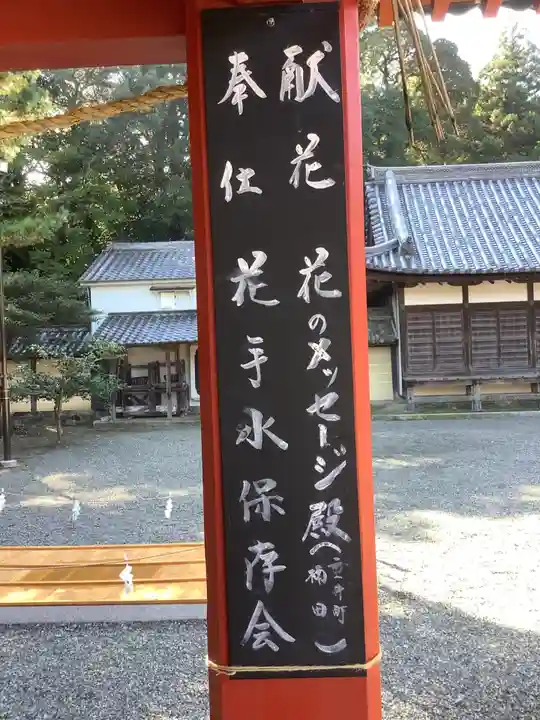 献花 花のメッセージ殿(重井町
楠田)
奉仕 花手水保存会